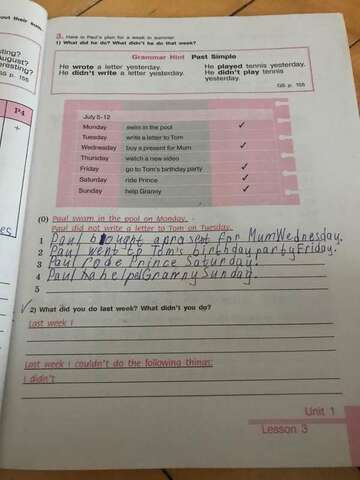 out their
3. Here is Paul's plan for a week in summer.
1) What did he do? What didn't he do that week?
Grammar Hint Past Simple
He wrote a letter yesterday. He played tennis yesterday.
He didn't write a letter yesterday. He didn't play tennis
yesterday.
GS p. 155
sting?
August?
eresting?
S p. 155
P4
+
es
July 5-12
Monday swim in the pool ✓
Tuesday write a letter to Tom
Wednesday buy a present for Mum ✓
Thursday watch a new video
Friday go to Tom's birthday party ✓
Saturday ride Prince ✓
Sunday help Granny ✓
(0) Paul swam in the pool on Monday.
Paul did not write a letter to Tom on Tuesday.
1 Paul bought a present for Mum Wednesday.
2 Paul went to Tom's birthday party Friday.
3 Paul rode Prince Saturday.
4 Paul Granny Sunday.
5
✓ 2) What did you do last week? What didn't you do?
Last week I
Last week I couldn't do the following things:
I didn't
Unit 1
Lesson 3